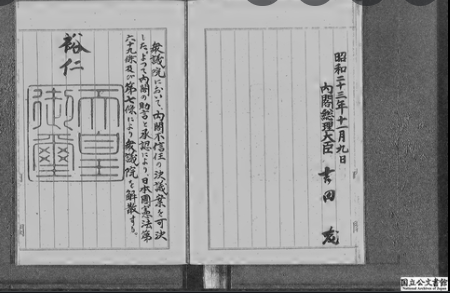 昭和二十三年十一月九日
内閣總理大臣 吉田茂
衆議院において、内閣不信任の決議案を可決
した。よつて内閣の助言と承認により、日本國憲法第
六十九條及び第七條により、衆議院を解散する。
裕仁
天皇
御璽
国立公文書館
National Archives of Japan